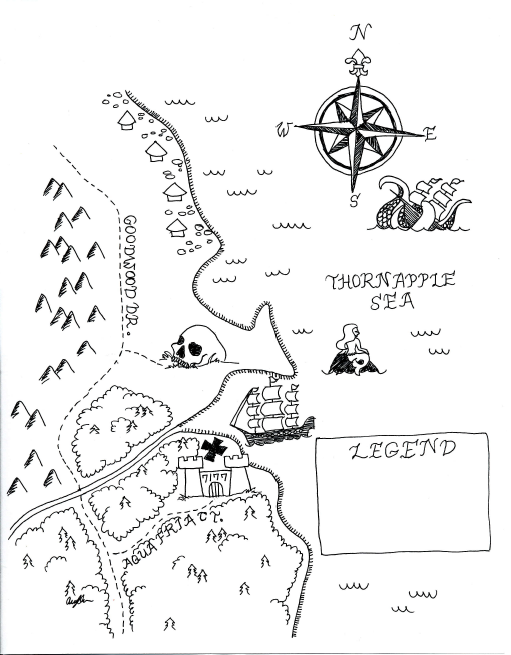 N
W
E
S
GOODWOOD DR.
THORNAPPLE
SEA
LEGEND
7177
AQUA PRIA CT.